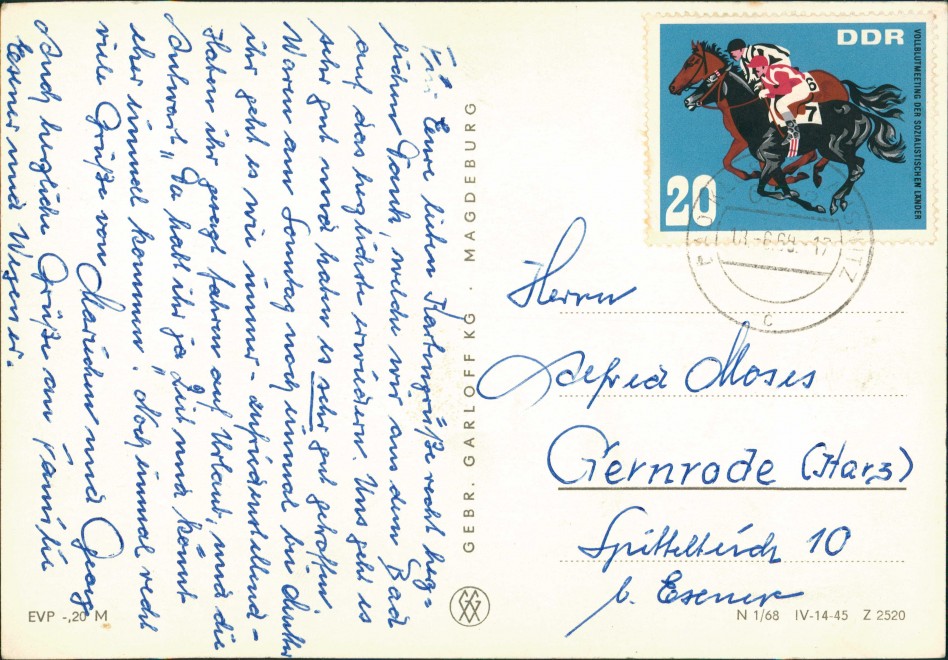 Für Eure lieben Kartengrüße recht herz-
lichen Dank, welche wir aus dem Bad
auf das herzlichste erwidern. Uns geht es
sehr gut und haben es sehr gut getroffen.
Waren am Sonntag noch einmal bei Mutter
ihr geht es wie immer - zufriedenstellend -
Haben ihr gesagt fahren auf Urlaub, und die
Antwort „Da habt ihr ja Zeit und könnt
eher einmal kommen". Noch einmal recht
viele Grüße von Mariechen und Georg
Auch herzliche Grüße an Familie
Exner und Wegener.
GEBR. GARLOFF KG · MAGDEBURG
EVP -,20 M
DDR
VOLLBLUTMEETING DER SOZIALISTISCHEN LÄNDER
20
6
7
-6.68.-17
C
Herrn
Alfred Moses
Gernrode (Harz)
Spittelteich 10
b. Exner
N 1/68 IV-14-45 Z 2520